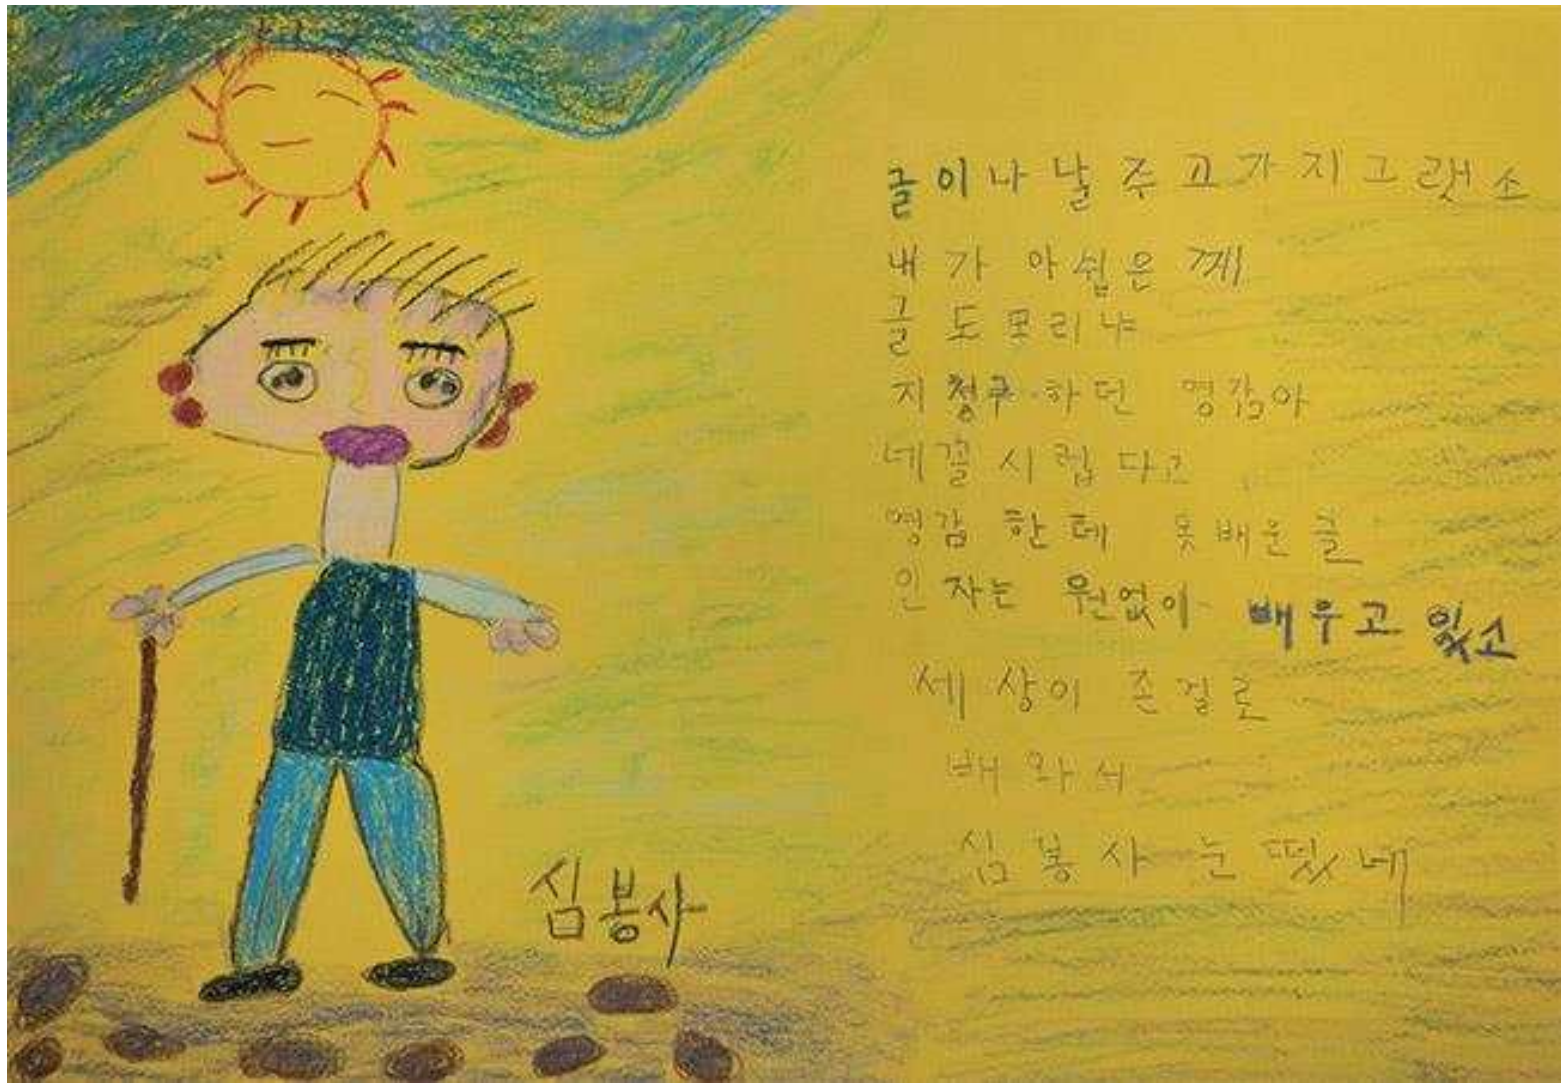 글이나 날 주고 가지 그랫소
내가 아쉽은께
글도 모리냐
지청구·하던 영감아
네꼴시럽다고
영감한테 못배운글
인자는 원없이 배우고 있소
세상이 존걸로
배와서
심봉사 눈 떴네
심봉사